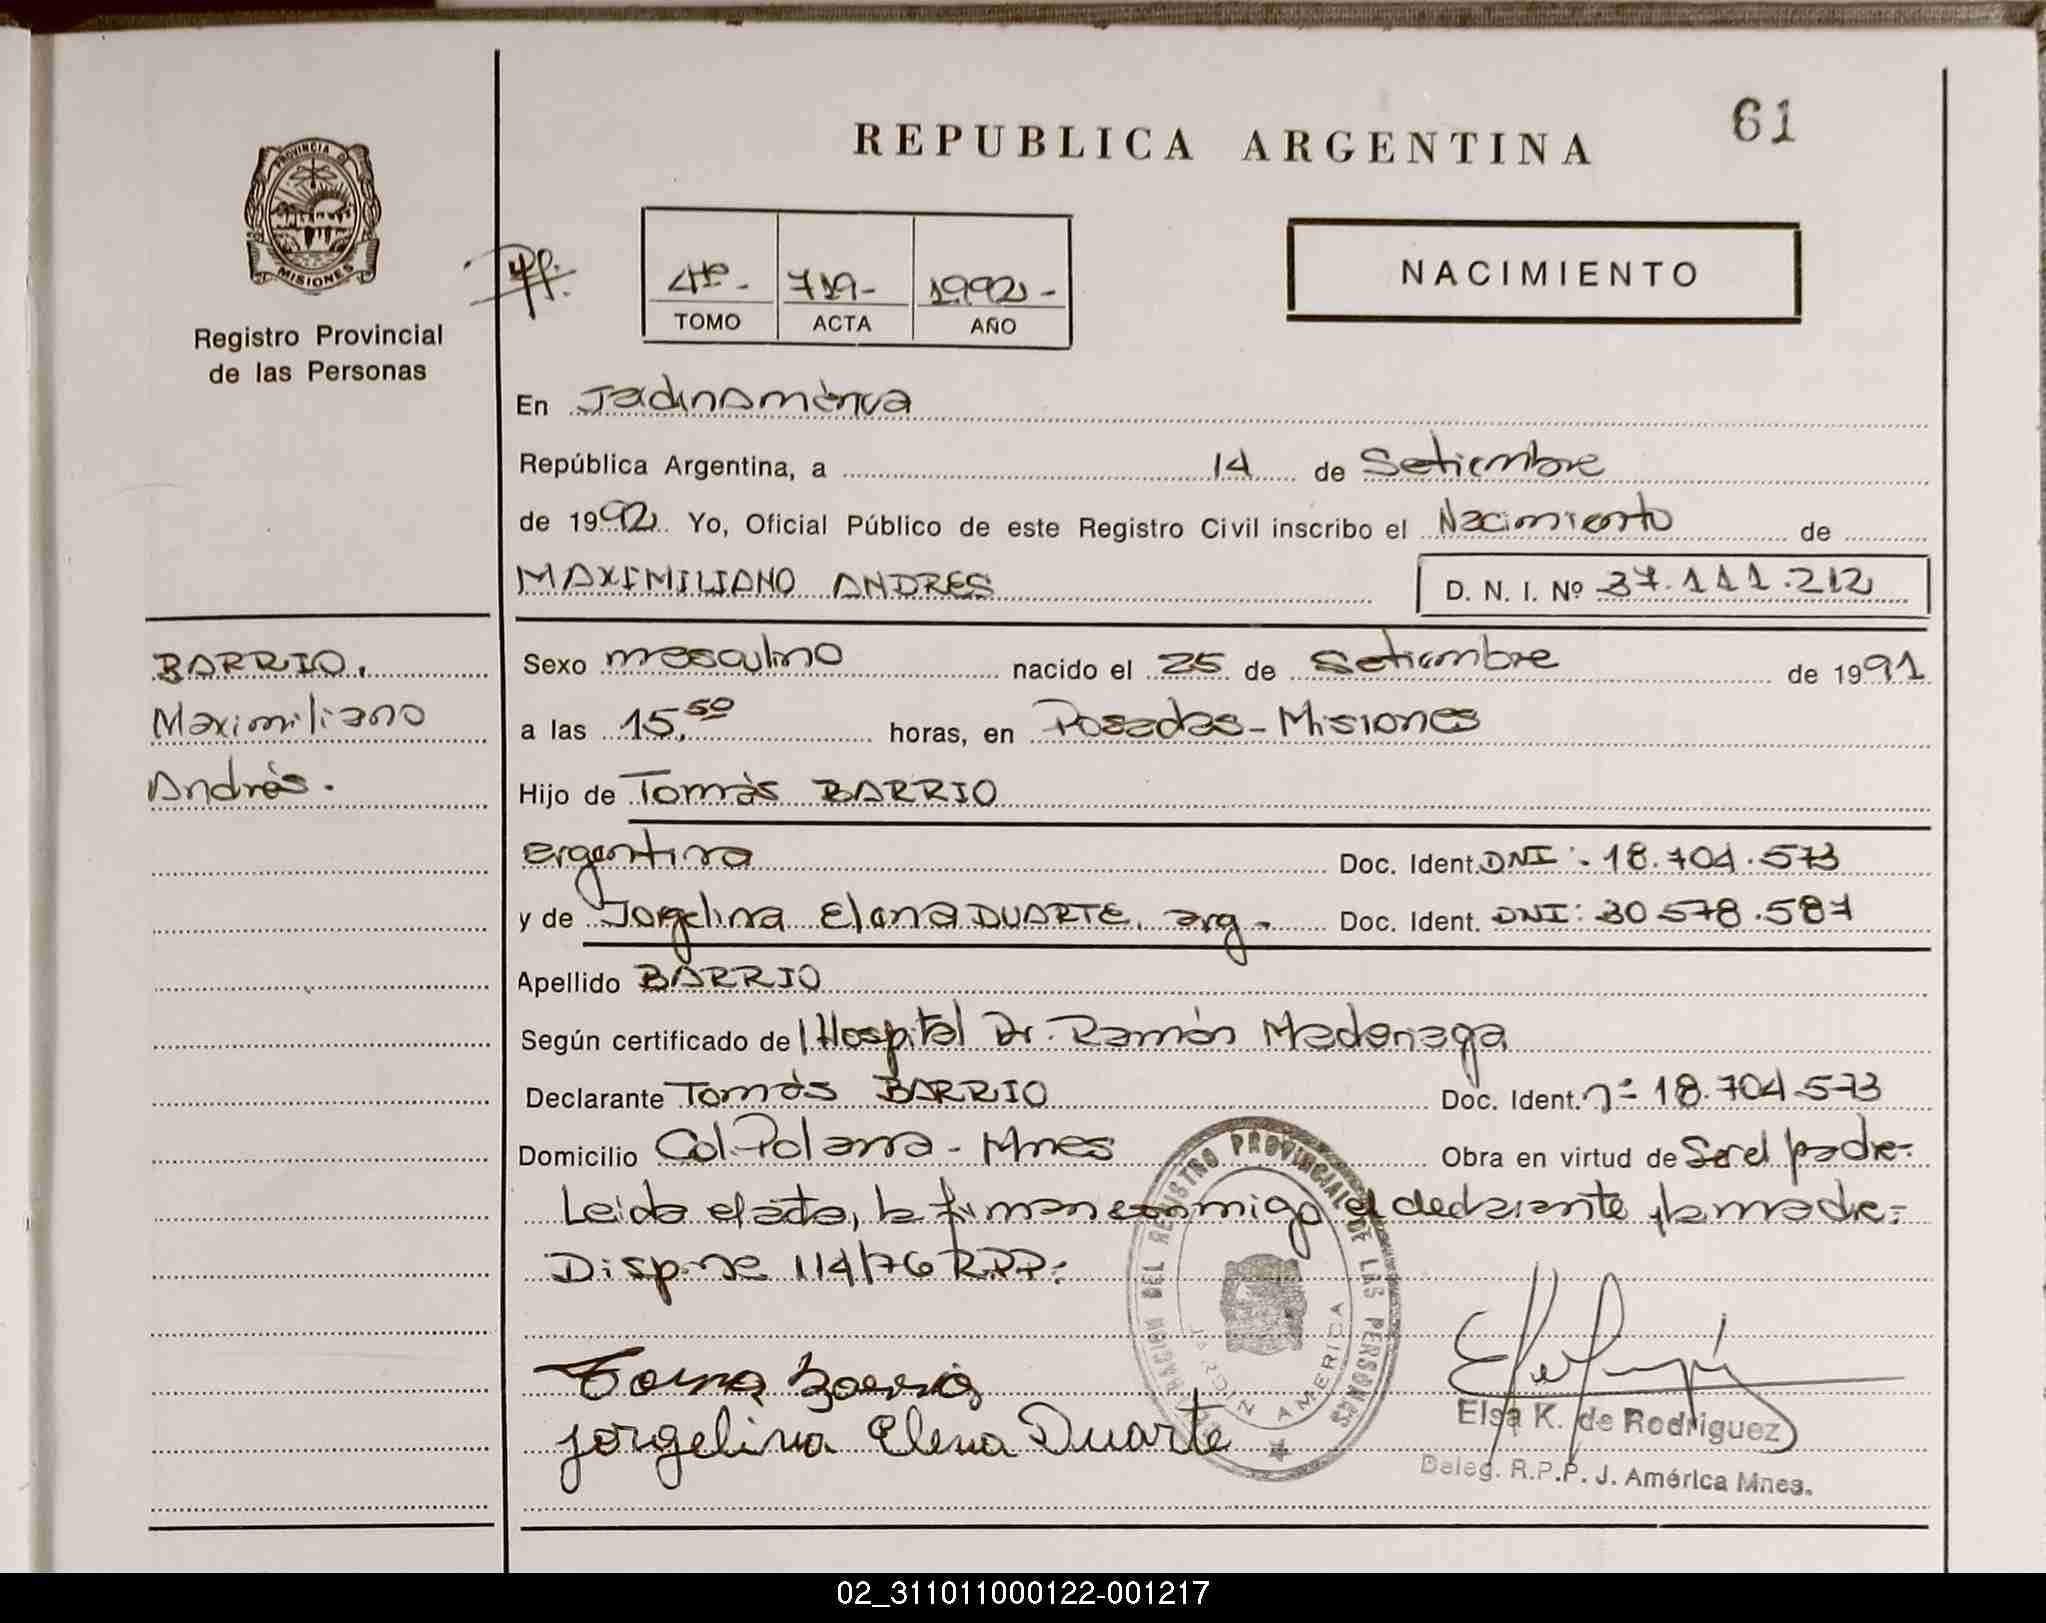 61
REPUBLICA ARGENTINA
PROVINCIA D MISIONES
Registro Provincial
de las Personas
4º- 719- 1992-
TOMO ACTA AÑO
NACIMIENTO
En Jardín América
República Argentina, a 14 de Setiembre
de 1992 Yo, Oficial Público de este Registro Civil inscribo el Nacimiento de
MAXIMILIANO ANDRES D. N. I. Nº 37.111.212
BARRIO,
Maximiliano
Andrés.
Sexo masculino nacido el 25 de Setiembre de 1991
a las 15,50 horas, en Posadas-Misiones
Hijo de Tomás BARRIO
argentina Doc. Ident. DNI:- 18.704.573
y de Jorgelina Elena DUARTE, arg- Doc. Ident. DNI: 30.578.587
Apellido BARRIO
Según certificado del Hospital Dr. Ramón Madariaga
Declarante Tomás BARRIO Doc. Ident. nº 18.704.573
Domicilio Col. Polana - Mnes Obra en virtud de Ser el padre-
Leida el acta, la firman conmigo el declarante y la madre-
114/76 R.P.P.-
REGISTRO PROVINCIAL DE LAS PERSONAS
JARDIN AMERICA
Jorgelina Elena Duarte
Elsa K. de Rodriguez
Deleg. R.P.P. J. América Mnes.
02_311011000122-001217